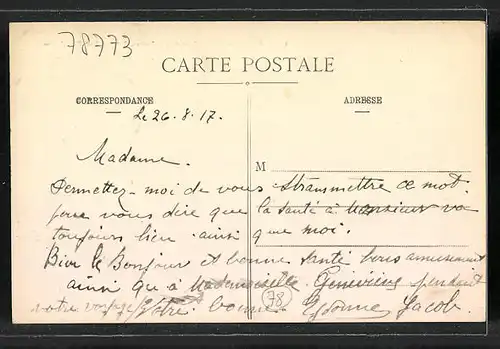 78773
CARTE POSTALE
CORRESPONDANCE
ADRESSE
Le 26.8.17.
Madame.
M
Permettez-moi de vous transmettre ce mot.
pour vous dire que la santé à Monsieur va
toujours bien ainsi que moi.
Bien le Bonjour et bonne santé bons amusement
ainsi qu'à Mademoiselle Geneviève pendant
votre voyage Votre bonne Yvonne Jacob.
78